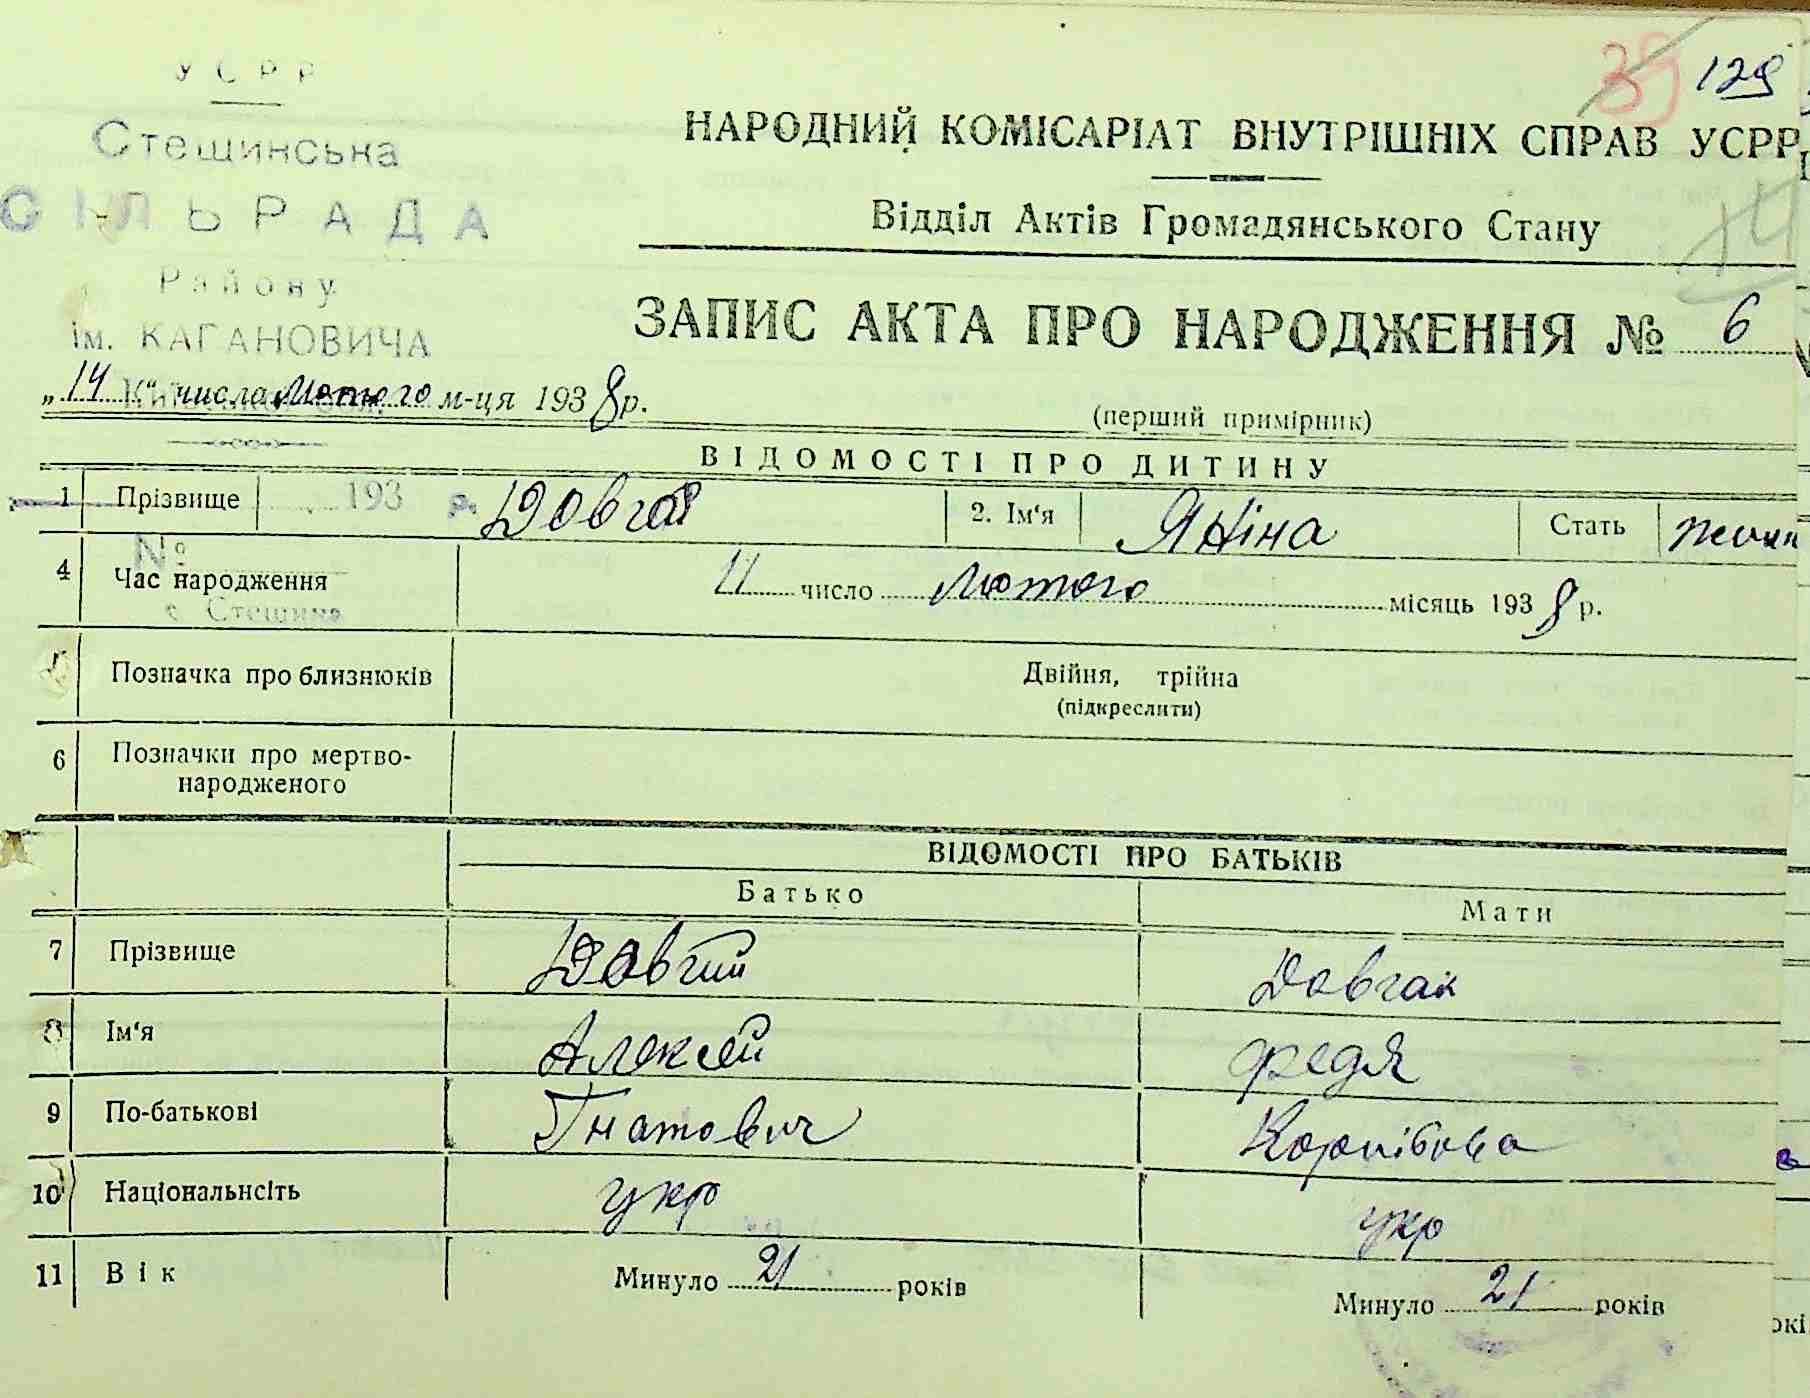 УСРР
Стешинська
СІЛЬРАДА
Району
ім. КАГАНОВИЧА
39 129
НАРОДНИЙ КОМІСАРІАТ ВНУТРІШНІХ СПРАВ УСРР
Відділ Актів Громадянського Стану
ЗАПИС АКТА ПРО НАРОДЖЕННЯ № 6
„14“ числа лютого м-ця 1938 р.
(перший примірник)
ВІДОМОСТІ ПРО ДИТИНУ
1 Прізвище 193 р. Довгай 2. Ім'я Яніна Стать
№
4 Час народження 11 число лютого місяць 1938 р.
с Стешина
Позначка про близнюків Двійня, трійна
(підкреслити)
6 Позначки про мертво-
народженого
ВІДОМОСТІ ПРО БАТЬКІВ
Батько Мати
7 Прізвище Довгий Довгак
8 Ім'я Алексей Федя
9 По-батькові Гнатович
10 Національнсіть укр укр
11 Вік Минуло 21 років Минуло 21 років